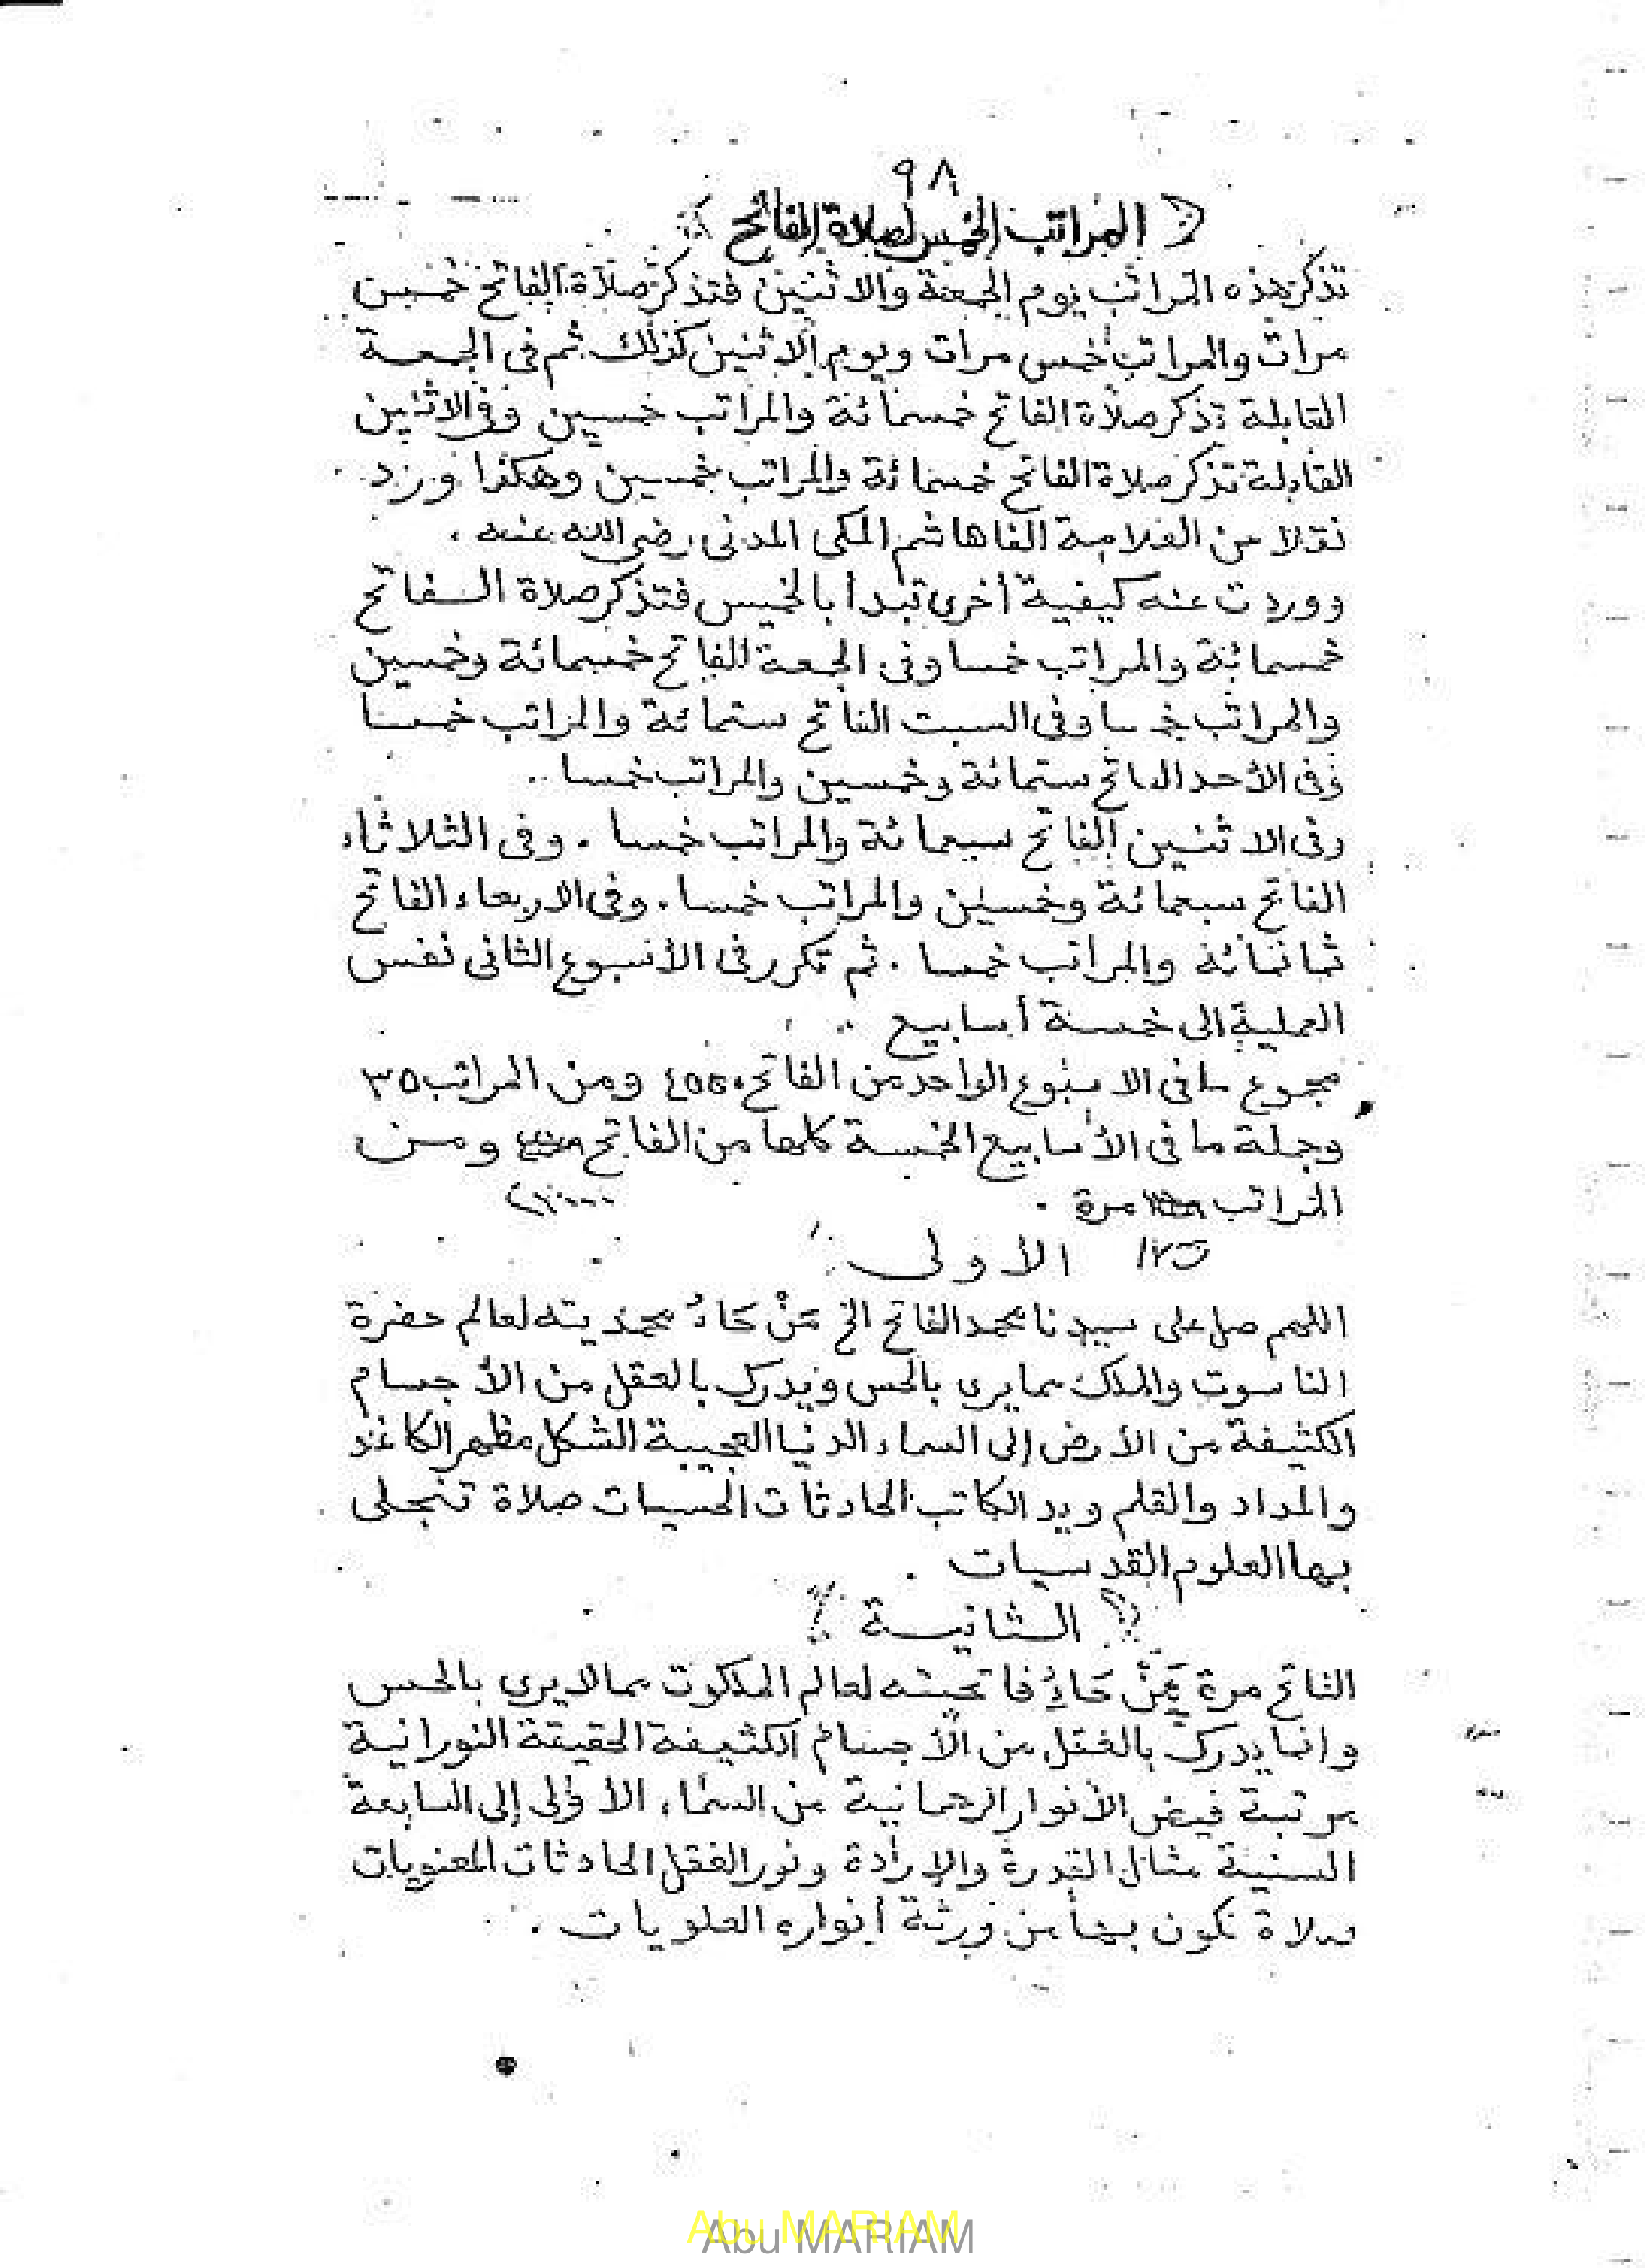 ٩٨
﴿ المراتب الخمس لصلاة الفاتح ﴾
تذكر هذه المراتب يوم الجمعة والاثنين فتذكر صلاة الفاتح خمس
مرات والمراتب خمس مرات ويوم الاثنين كذلك ثم فى الجمعة
القابلة تذكر صلاة الفاتح خمسمائة والمراتب خمسين وفى الاثنين
القابلة تذكر صلاة الفاتح خمسمائة والمراتب خمسين وهكذا ورد
نقلا من العلامة الفاهاشم المكى المدنى رضى الله عنه .
ووردت عنه كيفية أخرى تبدأ بالخميس فتذكر صلاة الفاتح
خمسمائة والمراتب خمسا وفى الجمعة الفاتح خمسمائة وخمسين
والمراتب خمسا وفى السبت الفاتح ستمائة والمراتب خمسا
وفى الأحد الفاتح ستمائة وخمسين والمراتب خمسا ..
وفى الاثنين الفاتح سبعمائة والمراتب خمسا . وفى الثلاثاء
الفاتح سبعمائة وخمسين والمراتب خمسا . وفى الاربعاء الفاتح
ثمانمائة والمراتب خمسا . ثم تكرر فى الأسبوع الثانى نفس
العملية إلى خمسة أسابيع
مجموع ما فى الاسبوع الواحد من الفاتح ٤٥٥٠ ومن المراتب ٣٥
وجملة ما فى الأسابيع الخمسة كلها من الفاتح ومن
المراتب مرة .
الأولى
اللهم صل على سيدنا محمد الفاتح الخ مَنْ حَاءُ محمديته لعالم حضرة
الناسوت والملك مما يرى بالحس ويدرك بالعقل من الأجسام
الكثيفة من الأرض إلى السماء الدنيا العجيبة الشكل مظهر الكاغد
والمداد والقلم ويد الكاتب الحادثات الحسيات صلاة تنجلى
بها العلوم القدسيات .
﴿ الثانية ﴾
الفاتح مرة مَنْ حَاءُ فاتحيته لعالم الملكوت مما لا يرى بالحس
وانما يدرك بالعقل من الأجسام الكثيفة الحقيقة النورانية
مرتبة فيض الأنوار الرحمانية من السماء الأولى إلى السابعة
السنية مثال القدرة والإرادة ونور العقل الحادثات المعنويات
صلاة نكون بها من ورثة أنواره العلويات .
Abu MARIAM